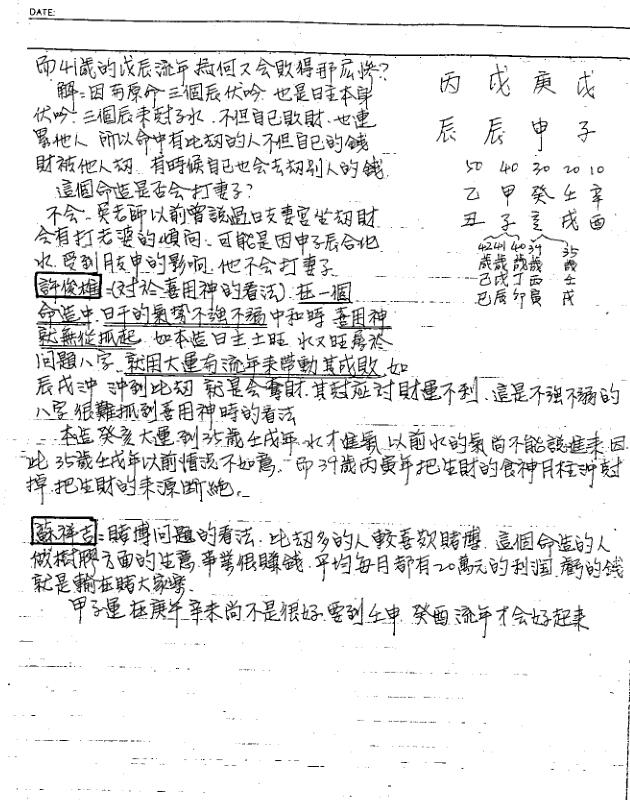 DATE:
而41歲的戊辰流年為何又会敗得那広惨?
解=因為原命三個辰伏吟 也是日主本身
伏吟 三個辰来尅子水 不但自己敗財 也連
累他人 所以命中有比劫的人不但自己的錢
財被他人劫 有時候自己也会去劫别人的錢
這個命造是否会打妻子?
不会 吴老師以前曾談過日支妻宮坐劫財
会有打老婆的傾向 可能是因申子辰合化
水 受到月支申的影响 他不会打妻子
許俊雄=(对於喜用神的看法) 在一個
命造中 日干的氣勢不强不弱 中和時 喜用神
就無從抓起 如本造日主土旺 水又旺 屬於
問題八字 就用大運為流年来帶動其成敗 如
辰戌沖 沖到比劫 就是会奪財 其对应对財運不利 這是不强不弱的
八字很難抓到喜用神時的看法
本造癸亥大運到35歲壬戌年 水才進氣 以前水的氣尚不能談進来 因
此35歲壬戌年以前情况不如意 即39歲丙寅年把生財的食神月柱沖尅
掉 把生財的来源断絶。
蘇祥吉=賭博問題的看法 比劫多的人較喜歡賭博 這個命造的人
做樹膠方面的生意 事業很賺錢 平均每日都有20萬元的利潤 虧的錢
就是輸在賭大家樂
甲子運在庚午 辛未尚不是很好 要到壬申 癸酉流年才会好起来
丙 戊 庚 戊
辰 辰 申 子
50 40 30 20 10
乙 甲 癸 壬 辛
丑 子 亥 戌 酉
42歲 41歲 40歲 39歲 35歲
己 戊 丁 丙 壬
巳 辰 卯 寅 戌